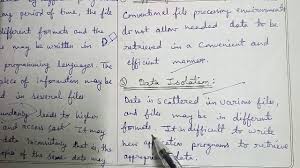 my period of time, the file
different formats and the
may be written in
programming languages. The
piece of information may be
in several files
leads to higher
and access cost. It may
data inconsistency that is, the
copies of the same data may
Conventional file processing environments
do not allow needed data to be
retrieved in a convenient and
efficient manner.
Data Isolation:
Data is scattered in various files,
and files may be in different
formats. It is difficult to write
new application programs to retrieve
appropriate data.